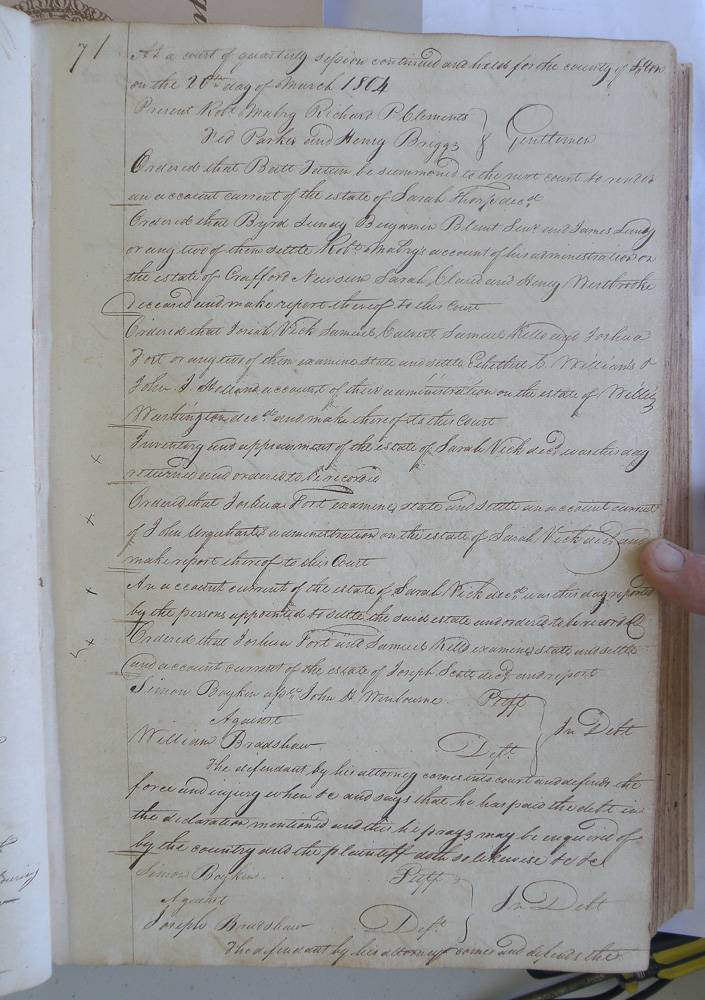 71
At a court of quarterly session continued and held for the county of
on the 20th day of March 1804
Present Robt Mabry Richard P Clements
Fed Parker and Henry Briggs } Gentlemen
Ordered that Batt Tatum be summoned to the next court to render
an account current of the estate of Sarah Thorpe decd
Ordered that Byrd Lundy Benjamin Blunt Senr and James Lundy
or any two of them settle Robt Mabry's account of his administration on
the estate of Crafford Newsum Sarah Claud and Henry Westbrooke
deceased and make report thereof to this Court
Ordered that Josiah Vick Samuel Calvert Samuel Kello and Joshua
Fort or any two of them examine state and settle Etheldred E. Williams &
John J. Holland account of their administration on the estate of Willis
Washington decd and make thereof to this Court
x
Inventory and appraisment of the estate of Sarah Vick decd was this day
returned and ordered to be recorded
x
Ordered that Joshua Fort examine, state and settle an account current
of John Urquharts administration on the estate of Sarah Vick decd and
make report thereof to this Court
x
An account current of the estate of Sarah Vick decd was this day reported
by the persons appointed to settle the said estate and ordered to be recorded
x
Ordered that Joshua Fort and Samuel Kello examine, state and settle
and account current of the estate of Joseph Scott decd and report
Simon Boykin assee John H Winbourne Pltff
Against } In Debt
William Bradshaw Deft.
The defendant by his attorney comes into court and defends the
force and injury when &c and says that he has paid the debt in
the declaration mentioned and this he prays may be enquired of
by the country and the plaintiff doth so likewise &c &c
Simon Boykin Pltff
Against } In Debt
Joseph Bradshaw Deft.
The defendant by his attorney comes and defends the